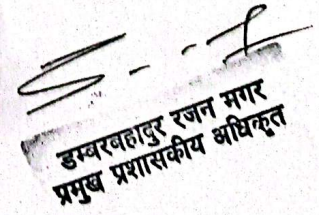 डम्बरबहादुर रजन मगर
प्रमुख प्रशासकीय अधिकृत